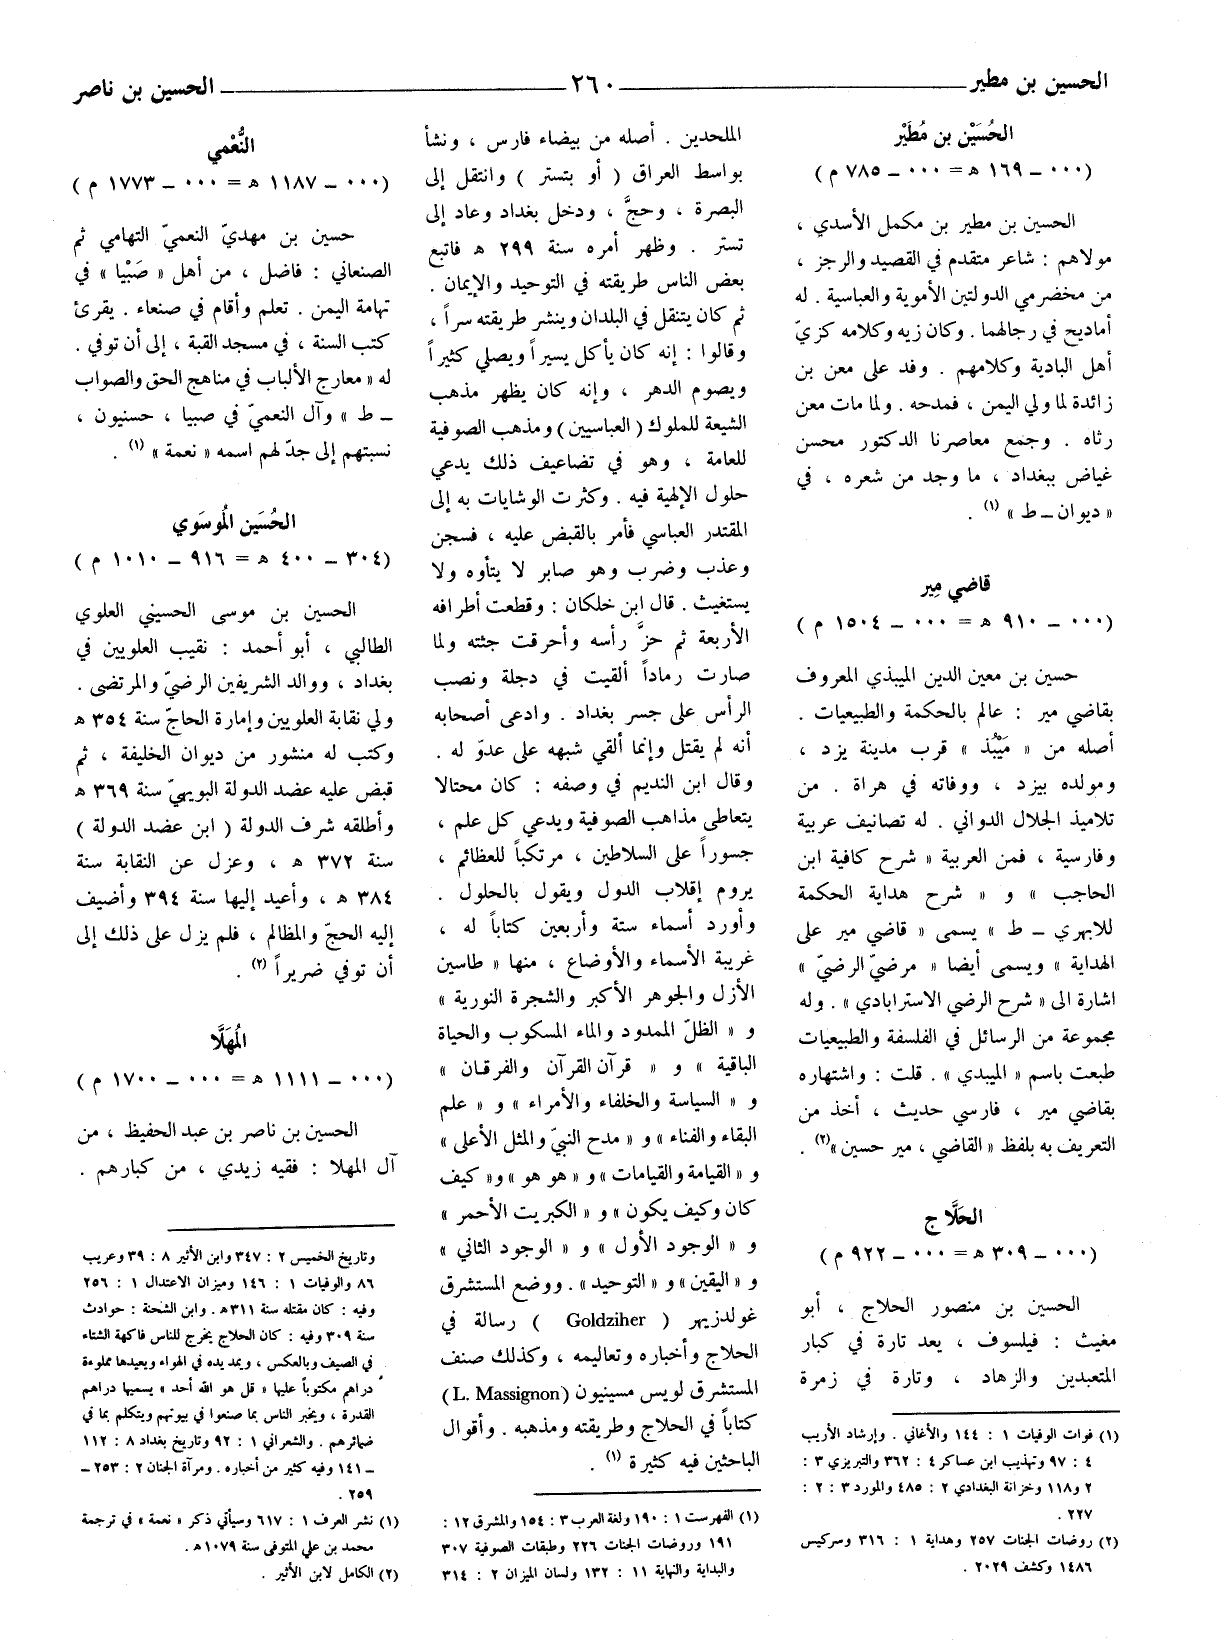 الحسين بن مطير
٢٦٠
الحسين بن ناصر
الحُسَيْن بن مُطَيْر
(٠٠٠ ــ ١٦٩ هـ = ٠٠٠ ــ ٧٨٥ م)
الحسين بن مطير بن مكمل الأسدي ،
مولاهم : شاعر متقدم في القصيد والرجز ،
من مخضرمي الدولتين الأموية والعباسية . له
أماديح في رجالهما . وكان زيه وكلامه كزيّ
أهل البادية وكلامهم . وفد على معن بن
زائدة لما ولي اليمن ، فمدحه . ولما مات معن
رثاه . وجمع معاصرنا الدكتور محسن
غياض ببغداد ، ما وجد من شعره ، في
« ديوان ــ ط » (١) .
قاضي مِير
(٠٠٠ ــ ٩١٠ هـ = ٠٠٠ ــ ١٥٠٤ م)
حسين بن معين الدين الميبذي المعروف
بقاضي مير : عالم بالحكمة والطبيعيات .
أصله من « مَيْبُذ » قرب مدينة يزد ،
ومولده بيزد ، ووفاته في هراة . من
تلاميذ الجلال الدواني . له تصانيف عربية
وفارسية ، فمن العربية « شرح كافية ابن
الحاجب » و « شرح هداية الحكمة
للابهري ــ ط » يسمى « قاضي مير على
الهداية » ويسمى أيضا « مرضيّ الرضيّ »
اشارة الى « شرح الرضي الاسترابادي » . وله
مجموعة من الرسائل في الفلسفة والطبيعيات
طبعت باسم « الميبدي » . قلت : واشتهاره
بقاضي مير ، فارسي حديث ، أخذ من
التعريف به بلفظ « القاضي ، مير حسين »(٢) .
الحَلَّاج
(٠٠٠ ــ ٣٠٩ هـ = ٠٠٠ ــ ٩٢٢ م)
الحسين بن منصور الحلاج ، أبو
مغيث : فيلسوف ، يعد تارة في كبار
المتعبدين والزهاد ، وتارة في زمرة
(١) فوات الوفيات ١ : ١٤٤ والأغاني . وإرشاد الأريب
٤ : ٩٧ وتهذيب ابن عساكر ٤ : ٣٦٢ والتبريزي ٣ :
٢ و١١٨ وخزانة البغدادي ٢ : ٤٨٥ والمورد ٣ : ٢ :
٢٢٧ .
(٢) روضات الجنات ٢٥٧ وهداية ١ : ٣١٦ وسركيس
١٤٨٦ وكشف ٢٠٢٩ .
الملحدين . أصله من بيضاء فارس ، ونشأ
بواسط العراق ( أو بتستر ) وانتقل إلى
البصرة ، وحجَّ ، ودخل بغداد وعاد إلى
تستر . وظهر أمره سنة ٢٩٩ هـ فاتبع
بعض الناس طريقته في التوحيد والإيمان .
ثم كان يتنقل في البلدان وينشر طريقته سراً ،
وقالوا : إنه كان يأكل يسيراً ويصلي كثيراً
ويصوم الدهر ، وإنه كان يظهر مذهب
الشيعة للملوك ( العباسيين ) ومذهب الصوفية
للعامة ، وهو في تضاعيف ذلك يدعي
حلول الإلهية فيه . وكثرت الوشايات به إلى
المقتدر العباسي فأمر بالقبض عليه ، فسجن
وعذب وضرب وهو صابر لا يتأوه ولا
يستغيث . قال ابن خلكان : وقطعت أطرافه
الأربعة ثم حزَّ رأسه وأحرقت جثته ولما
صارت رماداً ألقيت في دجلة ونصب
الرأس على جسر بغداد . وادعى أصحابه
أنه لم يقتل وإنما ألقي شبهه على عدوّ له .
وقال ابن النديم في وصفه : كان محتالا
يتعاطى مذاهب الصوفية ويدعي كل علم ،
جسوراً على السلاطين ، مرتكباً للعظائم ،
يروم إقلاب الدول ويقول بالحلول .
وأورد أسماء ستة وأربعين كتاباً له ،
غريبة الأسماء والأوضاع ، منها « طاسين
الأزل والجوهر الأكبر والشجرة النورية »
و « الظلّ الممدود والماء المسكوب والحياة
الباقية » و « قرآن القرآن والفرقان »
و « السياسة والخلفاء والأمراء » و « علم
البقاء والفناء » و « مدح النبيّ والمثل الأعلى »
و « القيامة والقيامات » و « هو هو » و« كيف
كان وكيف يكون » و « الكبريت الأحمر »
و « الوجود الأول » و « الوجود الثاني »
و « اليقين » و « التوحيد » . ووضع المستشرق
غولدزيهر ( Goldziher ) رسالة في
الحلاج وأخباره وتعاليمه ، وكذلك صنف
المستشرق لويس مسينيون (L. Massignon)
كتاباً في الحلاج وطريقته ومذهبه . وأقوال
الباحثين فيه كثيرة (١) .
(١) الفهرست ١ : ١٩٠ ولغة العرب ٣ : ١٥٤ والمشرق ١٢ :
١٩١ وروضات الجنات ٢٢٦ وطبقات الصوفية ٣٠٧
والبداية والنهاية ١١ : ١٣٢ ولسان الميزان ٢ : ٣١٤
النُّعْمي
(٠٠٠ ــ ١١٨٧ هـ = ٠٠٠ ــ ١٧٧٣ م)
حسين بن مهديّ النعميّ التهامي ثم
الصنعاني : فاضل ، من أهل « صَبْيا » في
تهامة اليمن . تعلم وأقام في صنعاء . يقرئ
كتب السنة ، في مسجد القبة ، إلى أن توفي .
له « معارج الألباب في مناهج الحق والصواب
ــ ط » وآل النعميّ في صبيا ، حسنيون ،
نسبتهم إلى جدّ لهم اسمه « نعمة » (١) .
الحُسَين المُوسَوي
(٣٠٤ ــ ٤٠٠ هـ = ٩١٦ ــ ١٠١٠ م)
الحسين بن موسى الحسيني العلوي
الطالبي ، أبو أحمد : نقيب العلويين في
بغداد ، ووالد الشريفين الرضيّ والمرتضى .
ولي نقابة العلويين وإمارة الحاجّ سنة ٣٥٤ هـ
وكتب له منشور من ديوان الخليفة ، ثم
قبض عليه عضد الدولة البويهيّ سنة ٣٦٩ هـ
وأطلقه شرف الدولة ( ابن عضد الدولة )
سنة ٣٧٢ هـ ، وعزل عن النقابة سنة
٣٨٤ هـ ، وأعيد إليها سنة ٣٩٤ وأضيف
إليه الحجّ والمظالم ، فلم يزل على ذلك إلى
أن توفي ضريراً (٢) .
المُهَلَّا
(٠٠٠ ــ ١١١١ هـ = ٠٠٠ ــ ١٧٠٠ م)
الحسين بن ناصر بن عبد الحفيظ ، من
آل المهلا : فقيه زيدي ، من كبارهم .
وتاريخ الخميس ٢ : ٣٤٧ وابن الأثير ٨ : ٣٩ وعريب
٨٦ والوفيات ١ : ١٤٦ وميزان الاعتدال ١ : ٢٥٦
وفيه : كان مقتله سنة ٣١١هـ . وابن الشحنة : حوادث
سنة ٣٠٩ وفيه : كان الحلاج يخرج للناس فاكهة الشتاء
في الصيف وبالعكس ، ويمد يده في الهواء ويعيدها مملوءة
دراهم مكتوباً عليها « قل هو الله أحد » يسميها دراهم
القدرة ، ويخبر الناس بما صنعوا في بيوتهم ويتكلم بما في
ضمائرهم . والشعراني ١ : ٩٢ وتاريخ بغداد ٨ : ١١٢
ــ ١٤١ وفيه كثير من أخباره . ومرآة الجنان ٢ : ٢٥٣ ــ
٢٥٩ .
(١) نشر العرف ١ : ٦١٧ وسيأتي ذكر « نعمة » في ترجمة
محمد بن علي المتوفى سنة ١٠٧٩ هـ .
(٢) الكامل لابن الأثير .